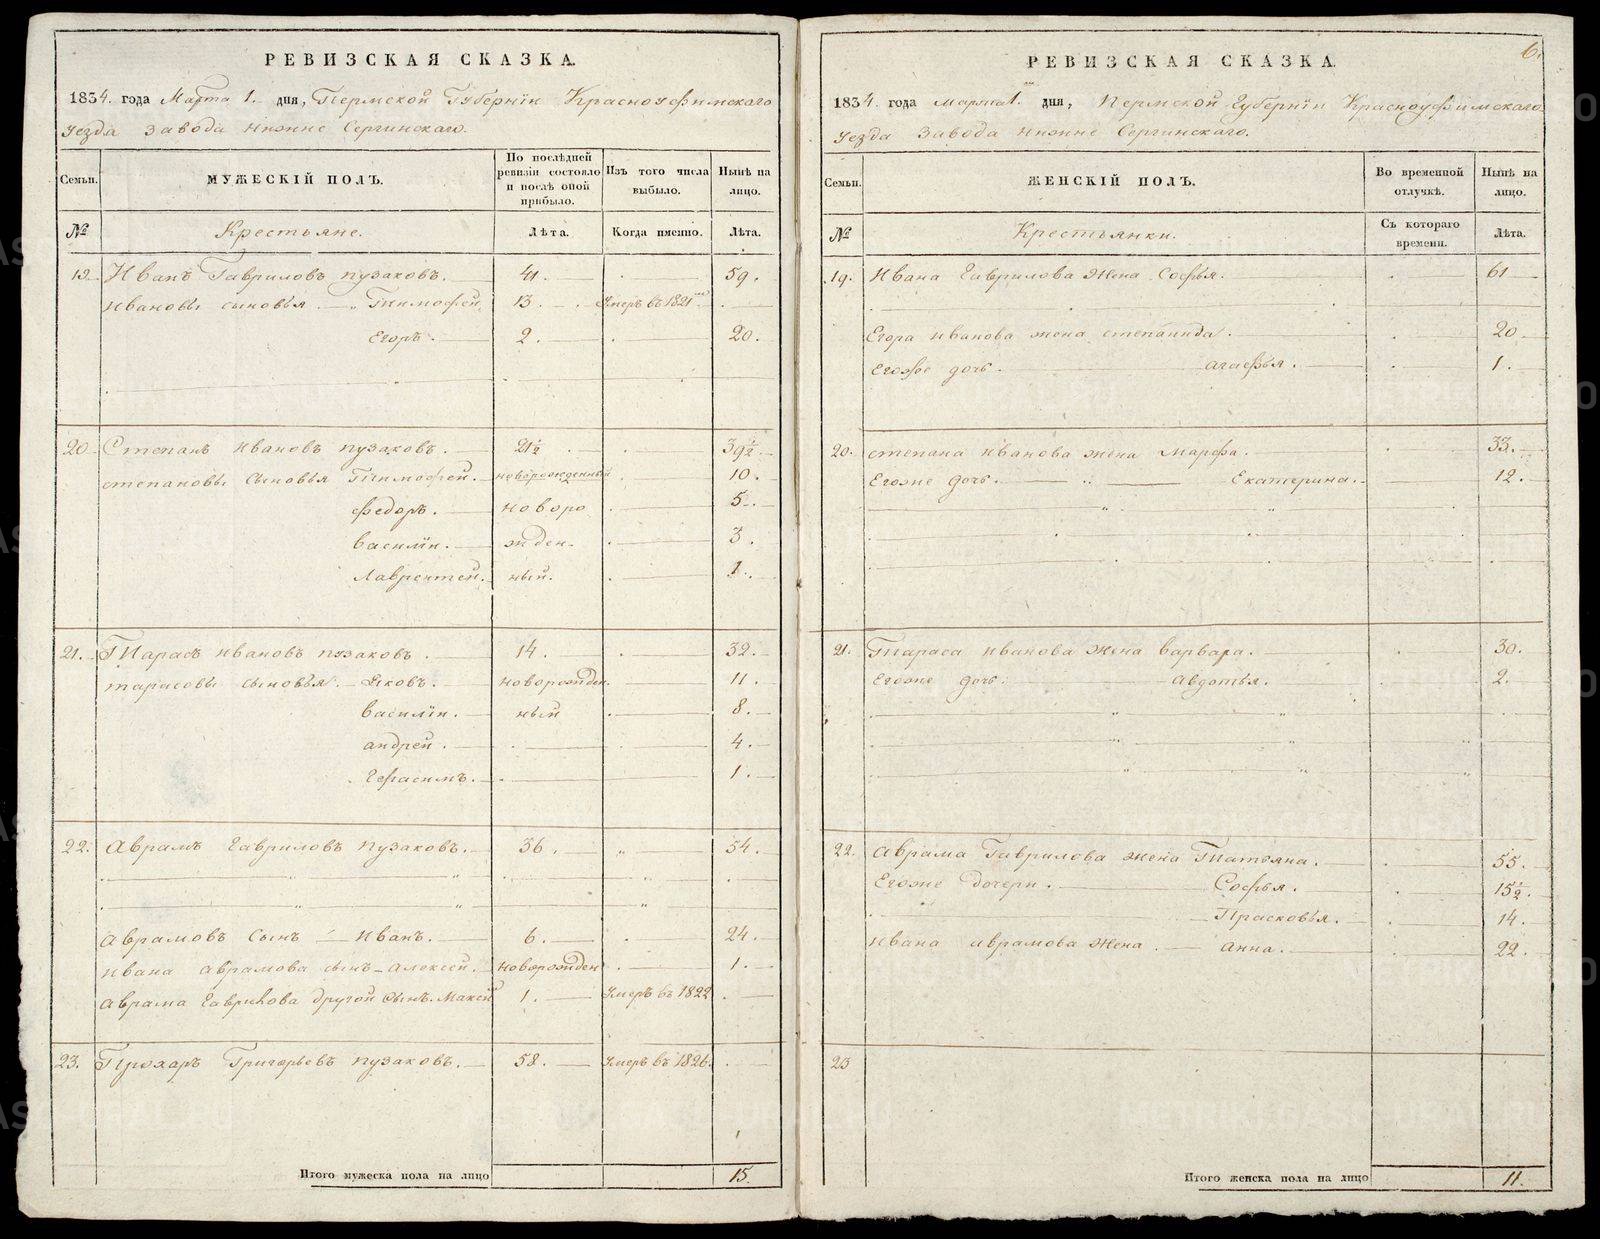 РЕВИЗСКАЯ СКАЗКА.
1834. года Марта 1. дня, Пермской Губернїи Красноуфимскаго
уезда завода нижне Сергинскаго.
Семьи. МУЖЕСКІЙ ПОЛЪ. По послѣдней ревизіи состояло и послѣ оной прибыло. Изъ того числа выбыло. Нынѣ на лицо.
№ Крестьяне. Лѣта. Когда именно. Лѣта.
19. Иванъ Гавриловъ пузаковъ. 41. 59.
Ивановы сыновья. Тимофей 13. Умеръ въ 1821
Егоръ. 2. 20.
20. Степанъ ивановъ пузаковъ. 21½ 39½
степановы сыновья Тимофей. новорожденный 10.
федоръ. новоро 5.
василїи. жден- 3.
лаврентей. ный. 1.
21. Тарасъ ивановъ пузаковъ. 14. 32.
тарасовы сыновья. Яковъ. новорожден. 11.
василїи. ный 8.
андрей. 4.
герасимъ. 1.
22. Аврамъ гавриловъ пузаковъ. 36. 54.
аврамовъ сынъ иванъ. 6. 24.
ивана аврамова сынъ алексей. новорожден 1.
аврама гаврилова другой сынъ. Максим 1. Умеръ въ 1822
23. Прохаръ Григорьевъ пузаковъ. 58. Умеръ въ 1826.
Итого мужеска пола на лицо 15.
6.
РЕВИЗСКАЯ СКАЗКА.
1834. года марта 1. дня, Пермской Губернїи Красноуфимскаго
уезда завода нижне Сергинскаго.
Семьи. ЖЕНСКІЙ ПОЛЪ. Во временной отлучкѣ. Нынѣ на лицо.
№ Крестьянки. Съ котораго времени. Лѣта.
19. Ивана гаврилова жена софья. 61
Егора иванова жена степанида. 20
Егоже дочь. агафья. 1.
20. степана иванова жена марфа. 33.
Егоже дочь. Екатерина. 12.
21. Тараса иванова жена варвара. 30.
Егоже дочь. авдотья. 2.
22. аврама Гаврилова жена Татьяна. 55.
Егоже дочери. Софья. 15½.
Прасковья. 14.
ивана аврамова жена. анна. 22.
23
Итого женска пола на лицо 11.
METRIKI.GASO-URAL.RU